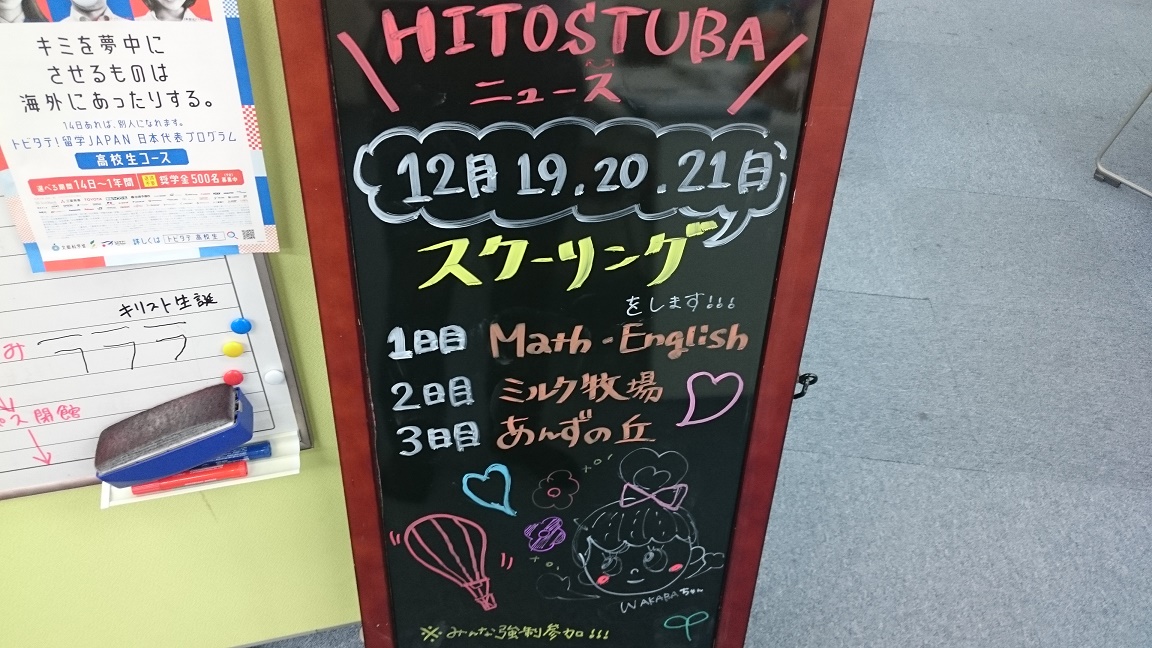 キミを夢中に
させるものは
海外にあったりする。
14日あれば、別人になれます。
トビタテ!留学JAPAN 日本代表プログラム
高校生コース
選べる期間 14日〜1年間 奨学金500名
詳しくは トビタテ 高校生
キリスト生誕
み
ス 閉館
HITOSTUBA
ニュース
12月 19.20.21日
スクーリング
をします!!!
1日目 Math - English
2日目 ミルク牧場
3日目 あんずの丘
WAKABAちゃん
※みんな強制参加!!!